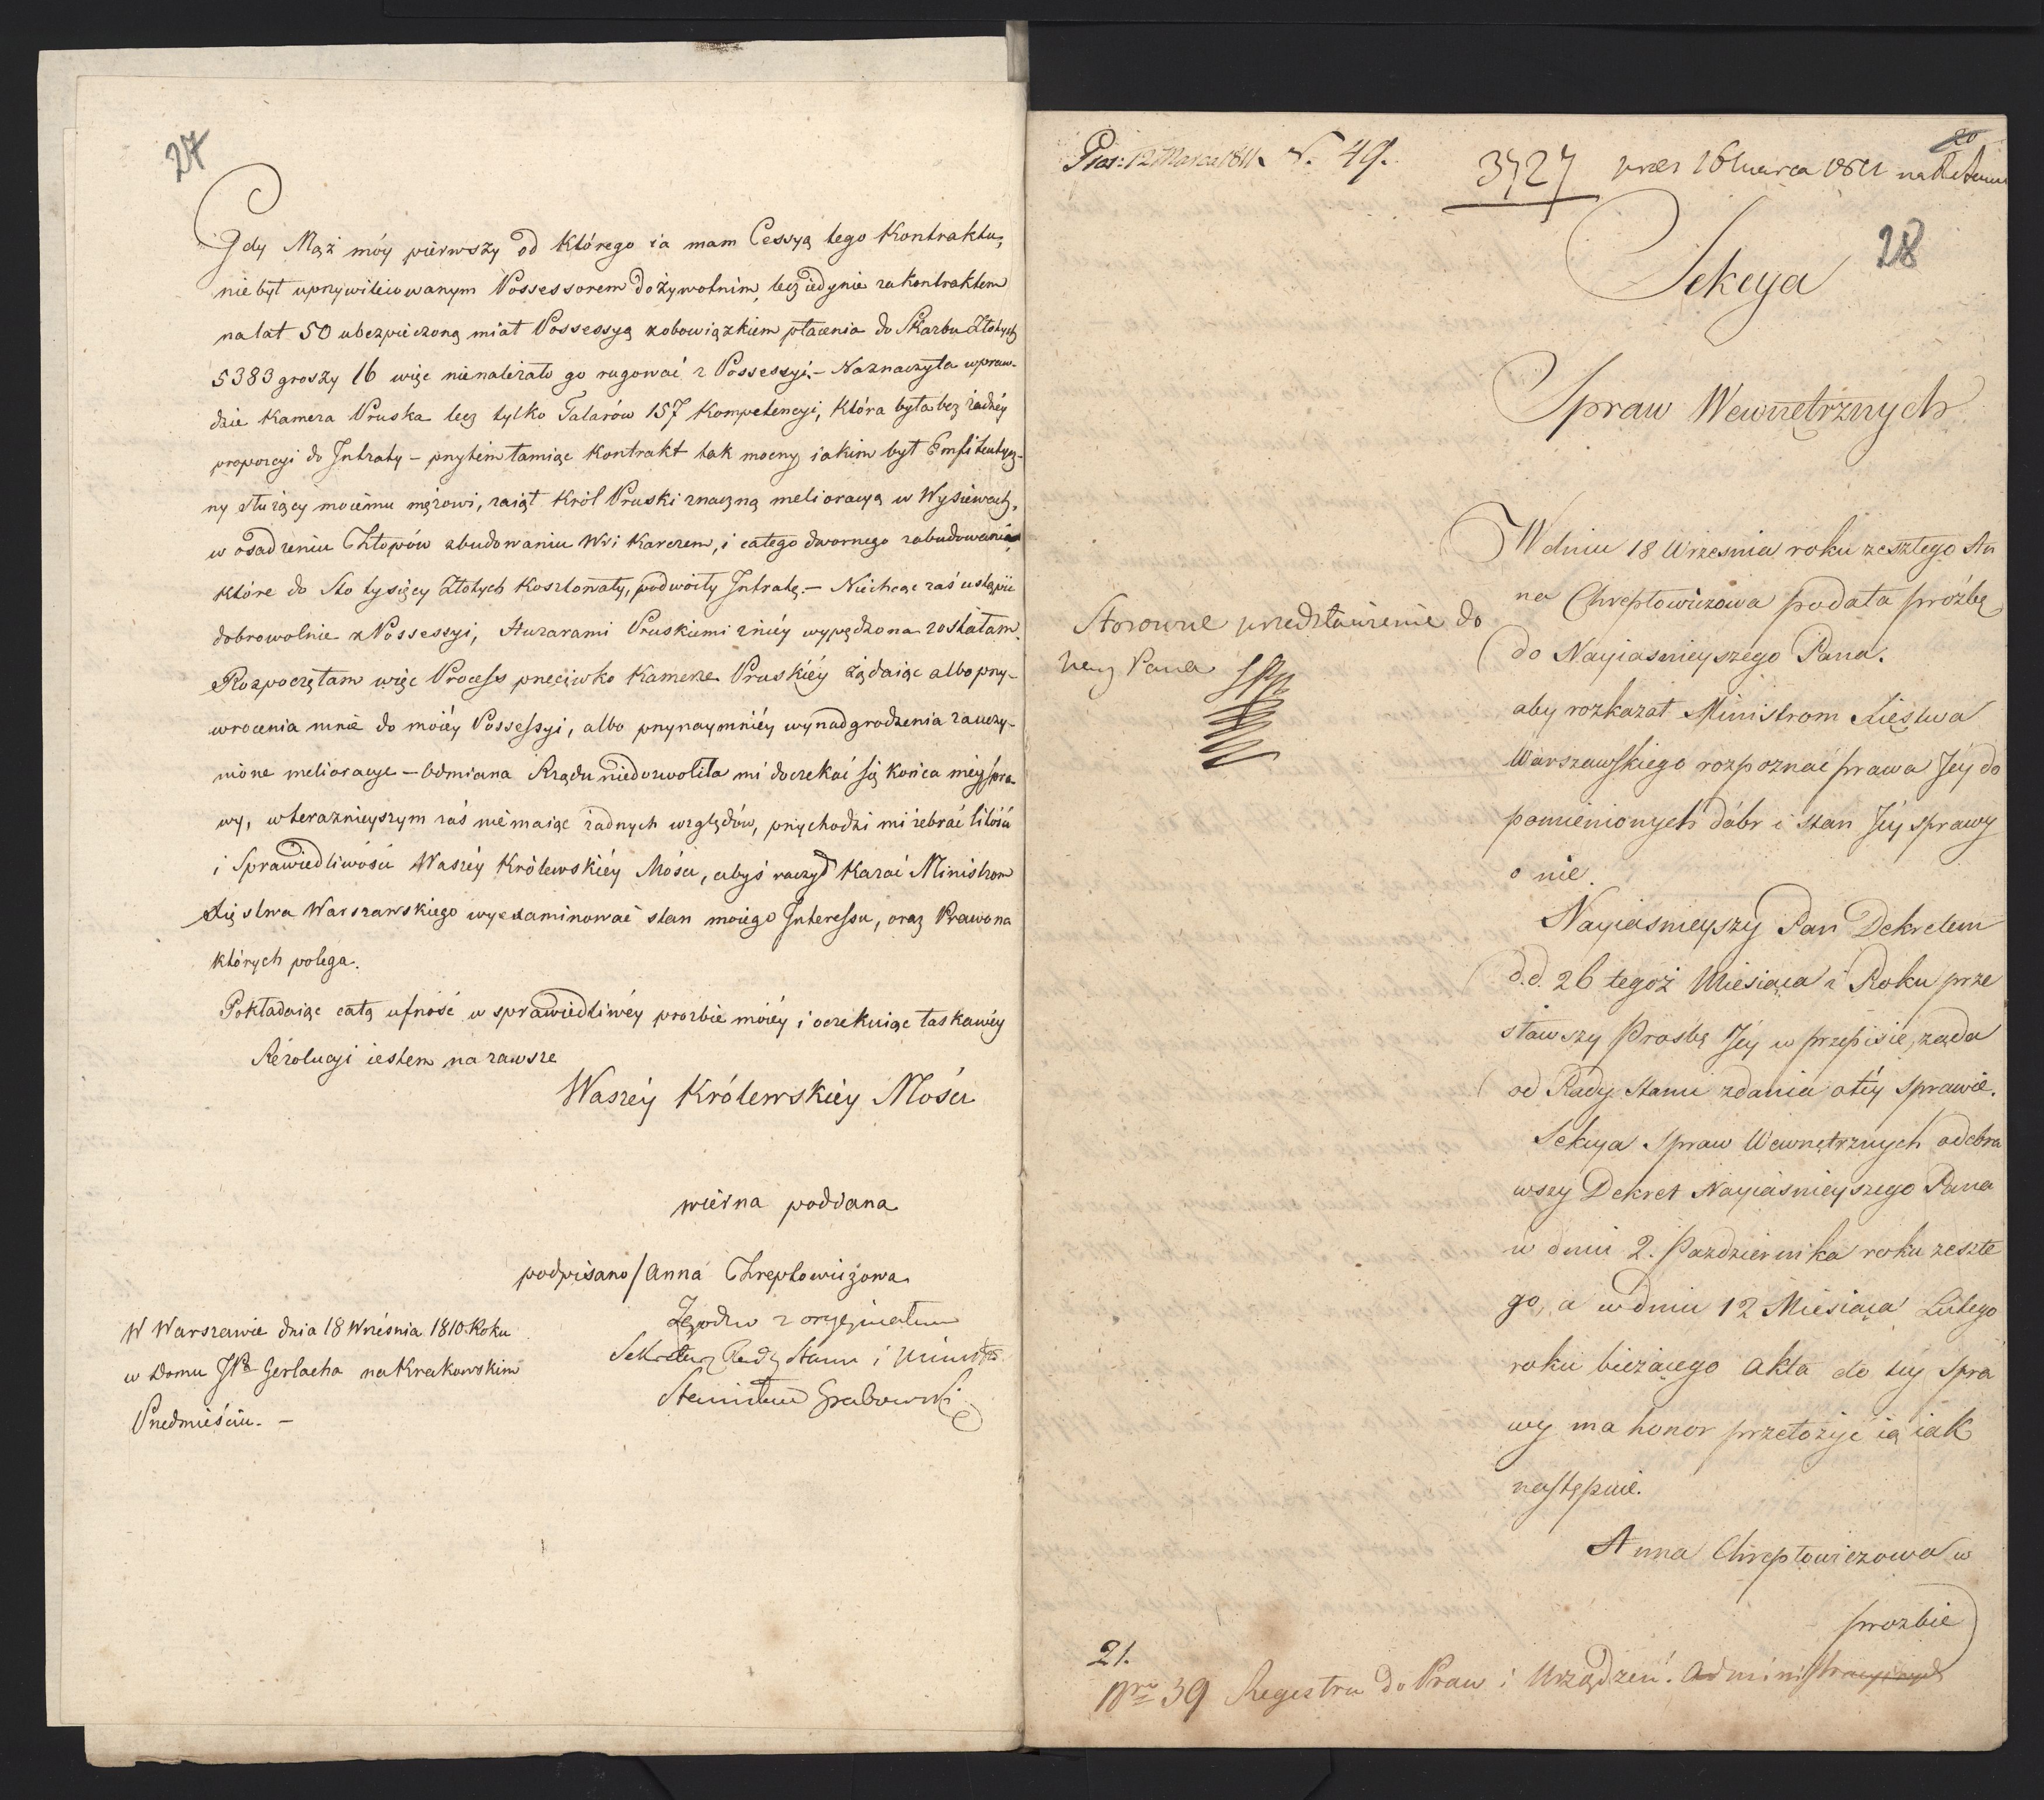 27
Gdy Mąż móy pierwszy od którego ia mam Cessyą tego Kontraktu,
nie był uprzywileiowanym Possessorem dożywotnim, lecz iedynie za kontraktem
na lat 50 ubezpieczoną miał Possessyą z obowiązkiem płacenia do Skarbu Złotych
5383 groszy 16 więc nienależało go rugować z Possessyi. – Naznaczyła wpraw-
dzie Kamera Pruska lecz tylko Talarów 157 Kompetencyi, która była bez żadnéy
proporcyi do Intraty – przytém łamiąc Kontrakt tak mocny iakim był Emfiteutycz-
ny służący moiému mężowi, zaiął Król Pruski znaczną melioracyą w Wysiewach,
w osadzeniu Chłopów zbudowaniu Wsi Karczem, i całego dwornego zabudowania,
które do Sto tysięcy Złotych kosztowały, podwoiły Intratę. – Niechcąc zaś ustąpić
dobrowolnie z Possessyi, Huzarami Pruskiemi zniéy wypędzona zostałam.
Rozpoczęłam więc Process przeciwko Kamerze Pruskiéy żądaiąc albo przy-
wrocenia mnie do moiéy Possessyi, albo przynaymniéy wynadgrodzenia za uczy-
nione melioracye – Odmiana Rządu niedozwoliła mi doczekać się końca méy spra-
wy, w teraznieyszym zaś niemaiąc żadnych względów, przychodzi mi żebrać litości
i Sprawiedliwości Waszéy Królewskiéy Mości, abyś raczył kazać Ministrom
Xięstwa Warszawskiego wyexaminować stan moiego Interessu, oraz Prawo na
których polega.
Pokładaiąc całą ufność w sprawiedliwéy prozbie moiéy i oczekuiąc łaskawéy
Rézolucyi iestem na zawsze
Waszéy Królewskiéy Mości
wiérna poddana
podpisano / Anna Chreptowiczowa
Zgodno z oryginałem
Sekretarz Rady Stanu i Ministrów
Stanisław Grabowski
W Warszawie dnia 18 Września 1810. Roku
w Domu JPa Gerlacha na Krakowskim
Przedmieściu. –
Pres: 12 Marca 1811. N. 49.
3727 przez 16 marca 1811 na
20
28
Sekcya
Spraw Wewnętrznych
W dniu 18 Wrzesnia roku zeszłego An
na Chreptowiczowa podała prózbę
do Nayiasnieyszego Pana.
aby rozkazał Ministrom Xięstwa
Warszawskiego rozpoznać prawa Jéy do
pomienionych dóbr i stan Jéy sprawy
o nie.
Stosowne przedstawienie do
Nay Pana
Nayiasnieyszy Pan Dekretem
d.d. 26 tegoż Miesiąca i Roku prze
sławszy Prosbę Jéy w przepisie, żąda
od Rady Stanu zdania o téy sprawie.
Sekcya Spraw Wewnętrznych odebra
wszy Dekret Nayiasnieyszego Pana
w dniu 2. Pazdziernika roku zeszłe
go, a w dniu 12 Miesiąca Lutego
roku bieżącego Akta do téy spra
wy ma honor przełożyć ią iak
następuie.
Anna Chreptowiczowa w
prozbie
21.
Nro 39 Regestru do Praw i Urządzeń Administracyinych